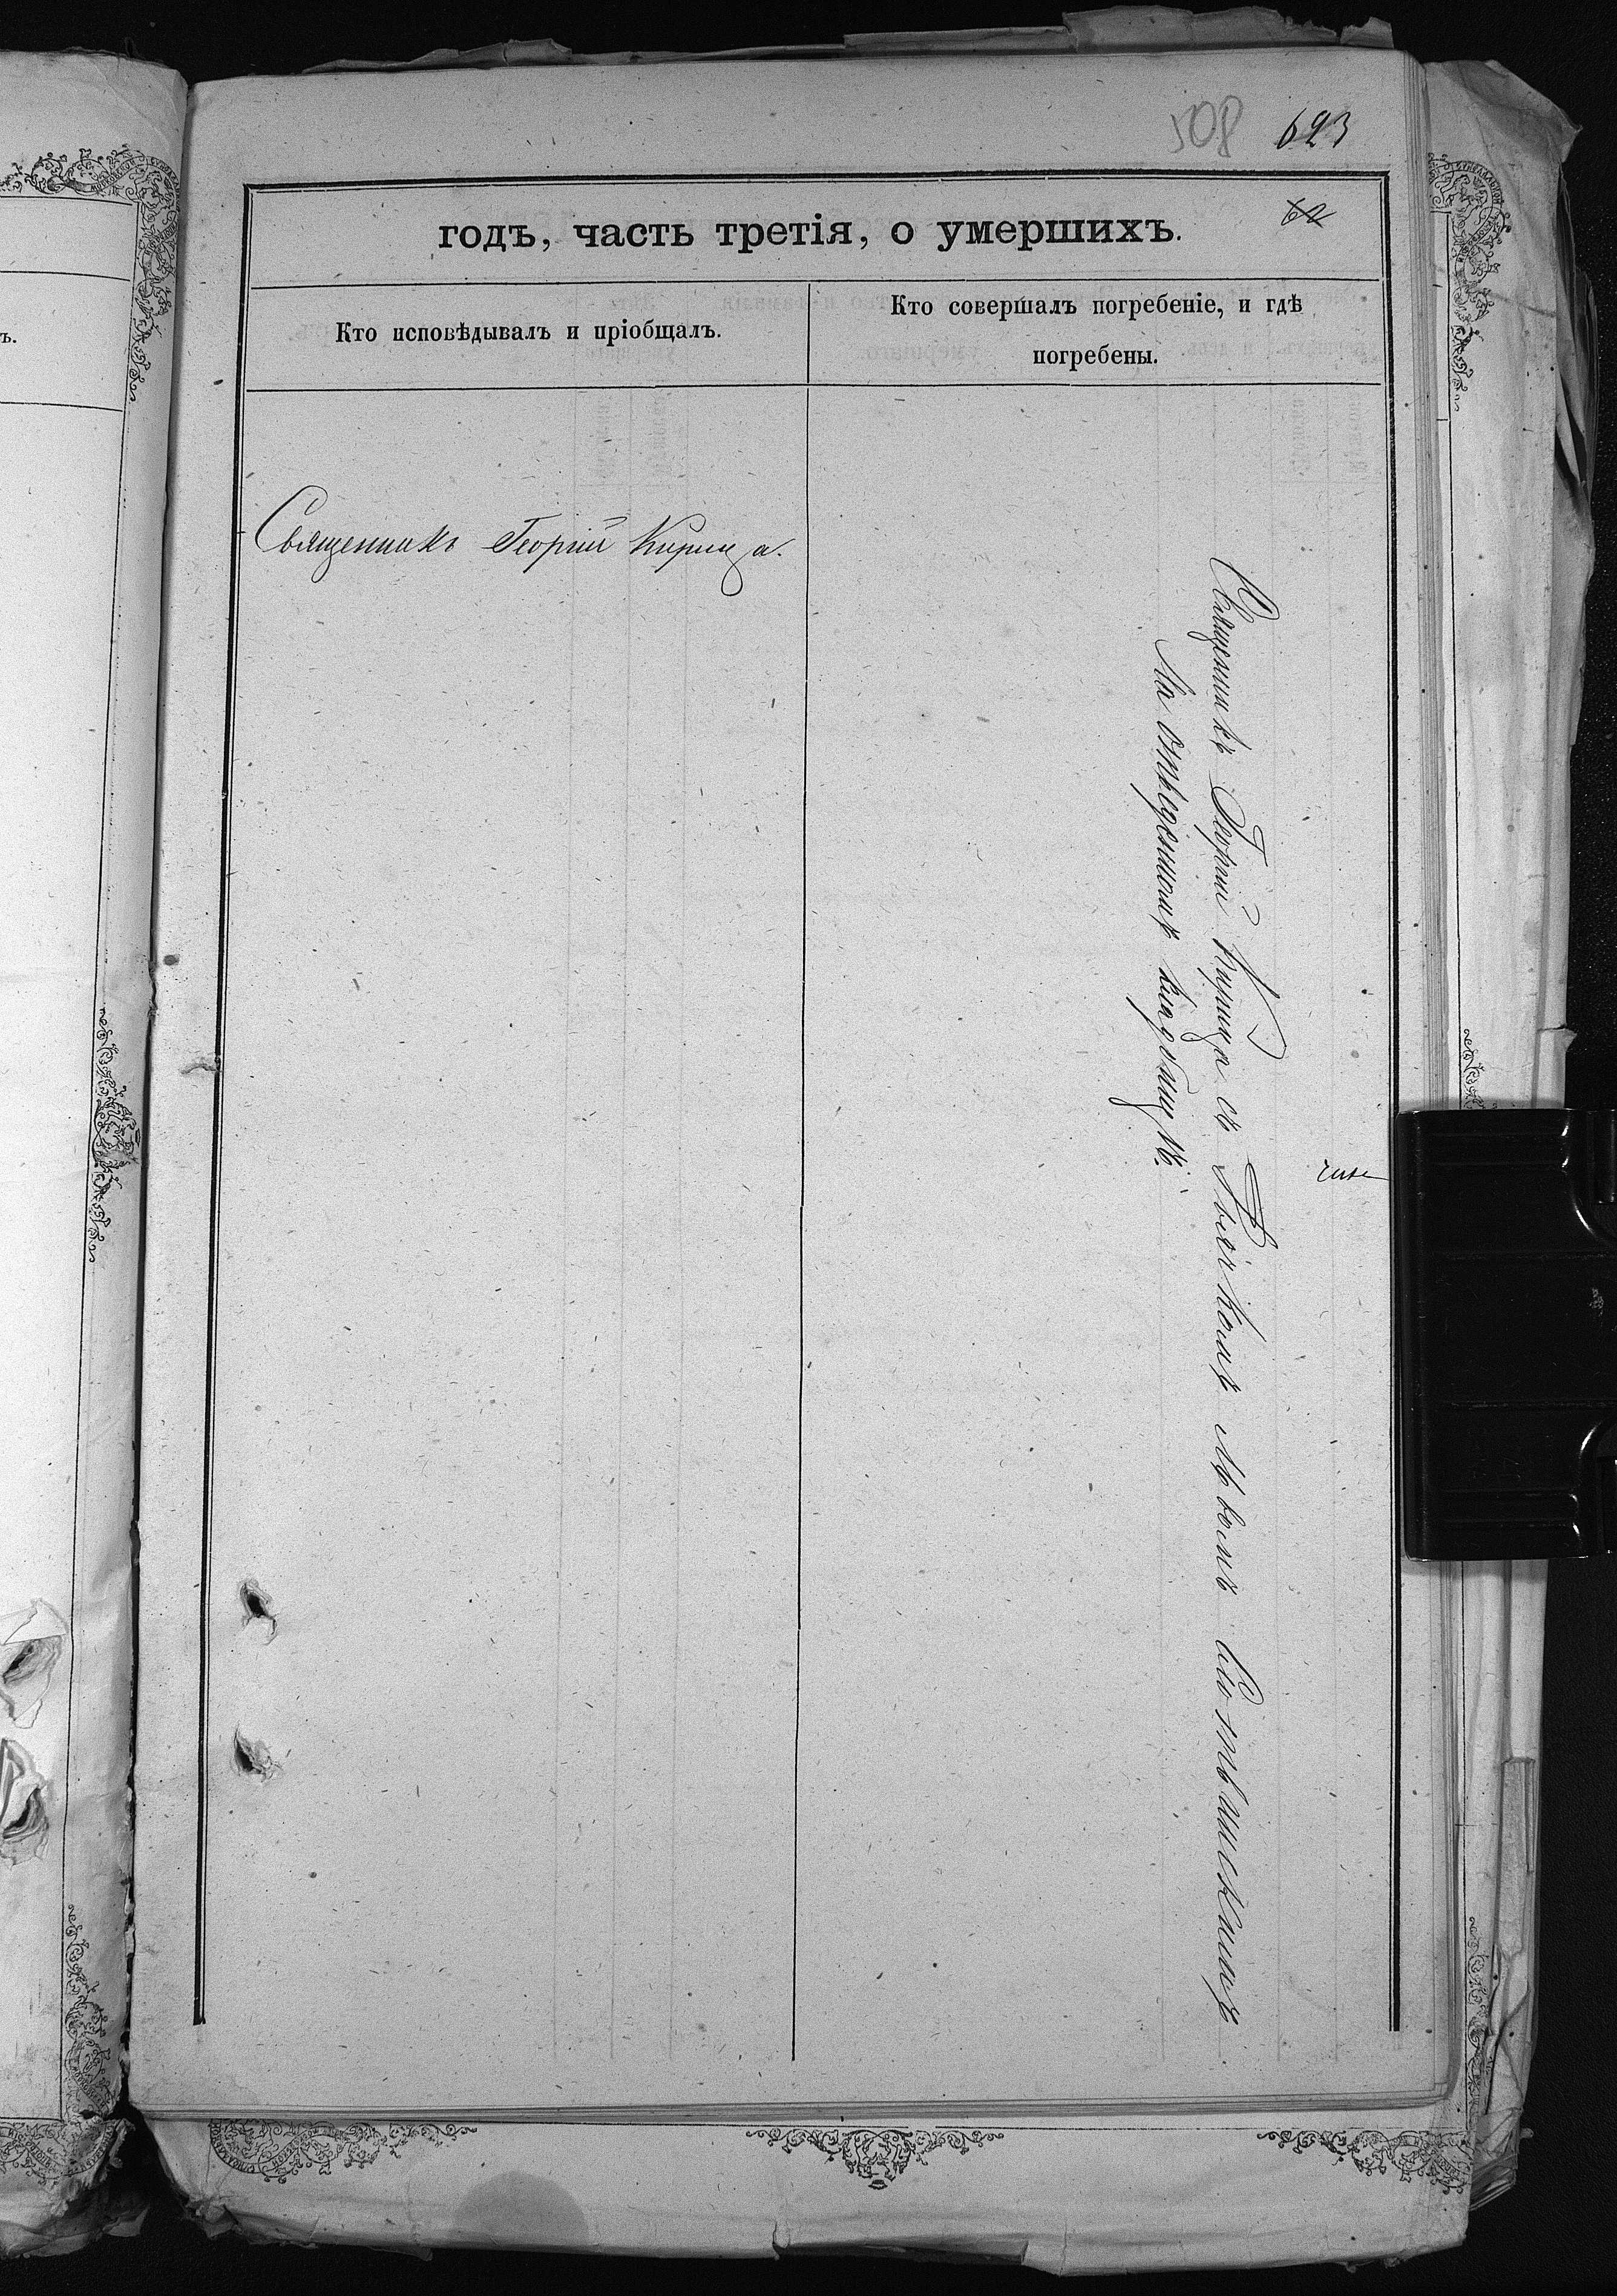 508 693
годъ, часть третія, о умершихъ.
62
Кто исповѣдывалъ и пріобщалъ.
Кто совершалъ погребеніе, и гдѣ
погребены.
ъ.
Священникъ Георгій Кирица.
Священникъ Георгій Кирица съ
На отведенномъ кладбищѣ.